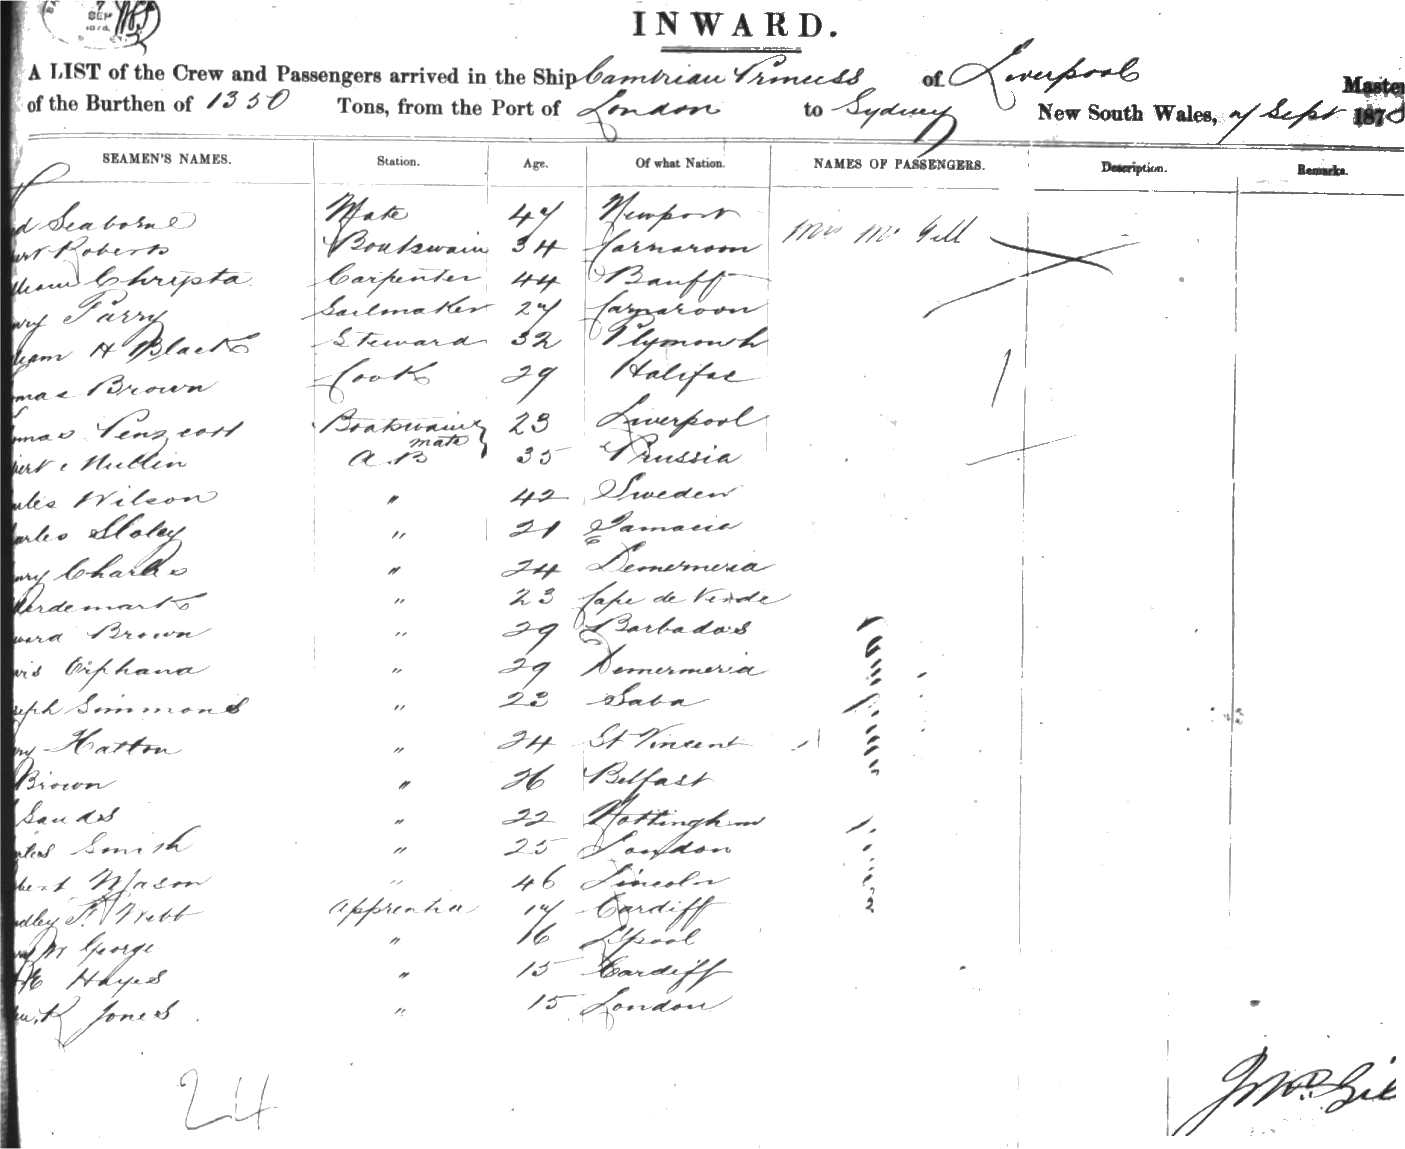 INWARD.
A LIST of the Crew and Passengers arrived in the Ship Cambrian Princess of Liverpool Master
of the Burthen of 1350 Tons, from the Port of London to Sydney New South Wales, 7 Sept 1878
SEAMEN'S NAMES. Station. Age. Of what Nation. NAMES OF PASSENGERS. Description. Remarks.
d Seaborne Mate 47 Newport Mrs Mc Gill
Roberts Boatswain 34 Carnarvon
liam Chrysta Carpenter 44 Banff
Parry Sailmaker 27 Carnarvon
liam H Black Steward 32 Plymouth
mas Brown Cook 29 Halifax
mas Boatswain's mate 23 Liverpool
bert Mullin A.B 35 Prussia
arles Wilson " 42 Sweden
arles Sloley " 21 Jamacia
nry Charles " 24 Demermeria
" 23 Cape de Verde
ward Brown " 29 Barbados
Orphana " 29 Demermeria
seph Simmons " 23 Saba
Hatton " 24 St Vincent
Brown " 26 Belfast
Sands " 22 Nottingham
arles Smith " 25 London
bert Mason " 46 Lincoln
dley F. Webb Apprentice 17 Cardiff
M George " 16 L'pool
E Hayes " 15 Cardiff
K Jones " 15 London
24
J McGil